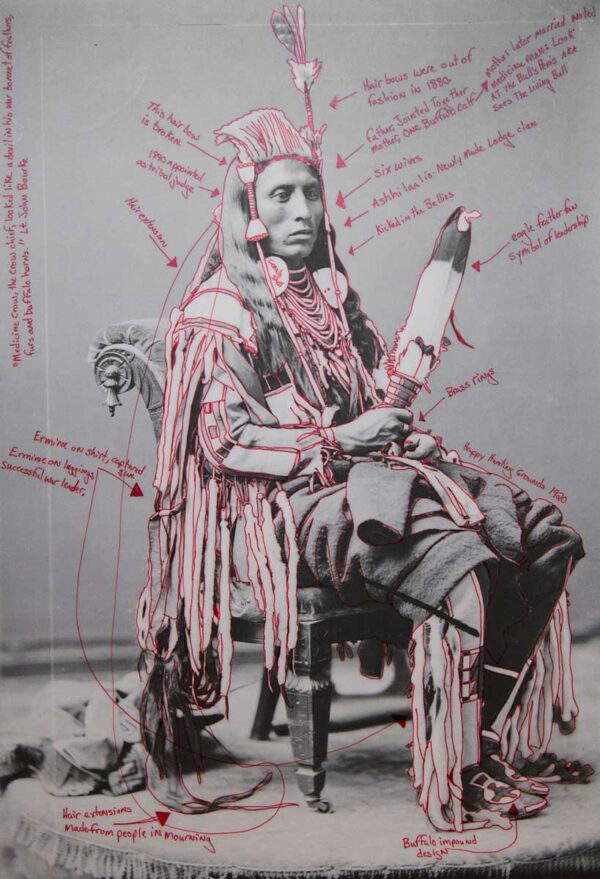 "Medicine Crow, the crow chief, looked like a devil in his war bonnet of feathers,
furs and buffalo horns." Lt. John Bourke
Hair bows were out of
fashion in 1880
mother later married noted
medicine man: Look
AT The Bull's Penis AKA
Sees The Living Bull
Father, Jointed Together
mother, One Buffalo Calf
This hair bow
is broken
appointed
as tribal judge
six wives
Newly Made Lodge clan
Kicked in the Bellies
Hair extensions
eagle feather fan
symbol of leadership
Brass rings
Happy Hunting Grounds 1920
Ermine on shirt, captured
gun
Ermine on leggings,
successful war leader
Hair extensions
made from people in mourning
Buffalo impound
design